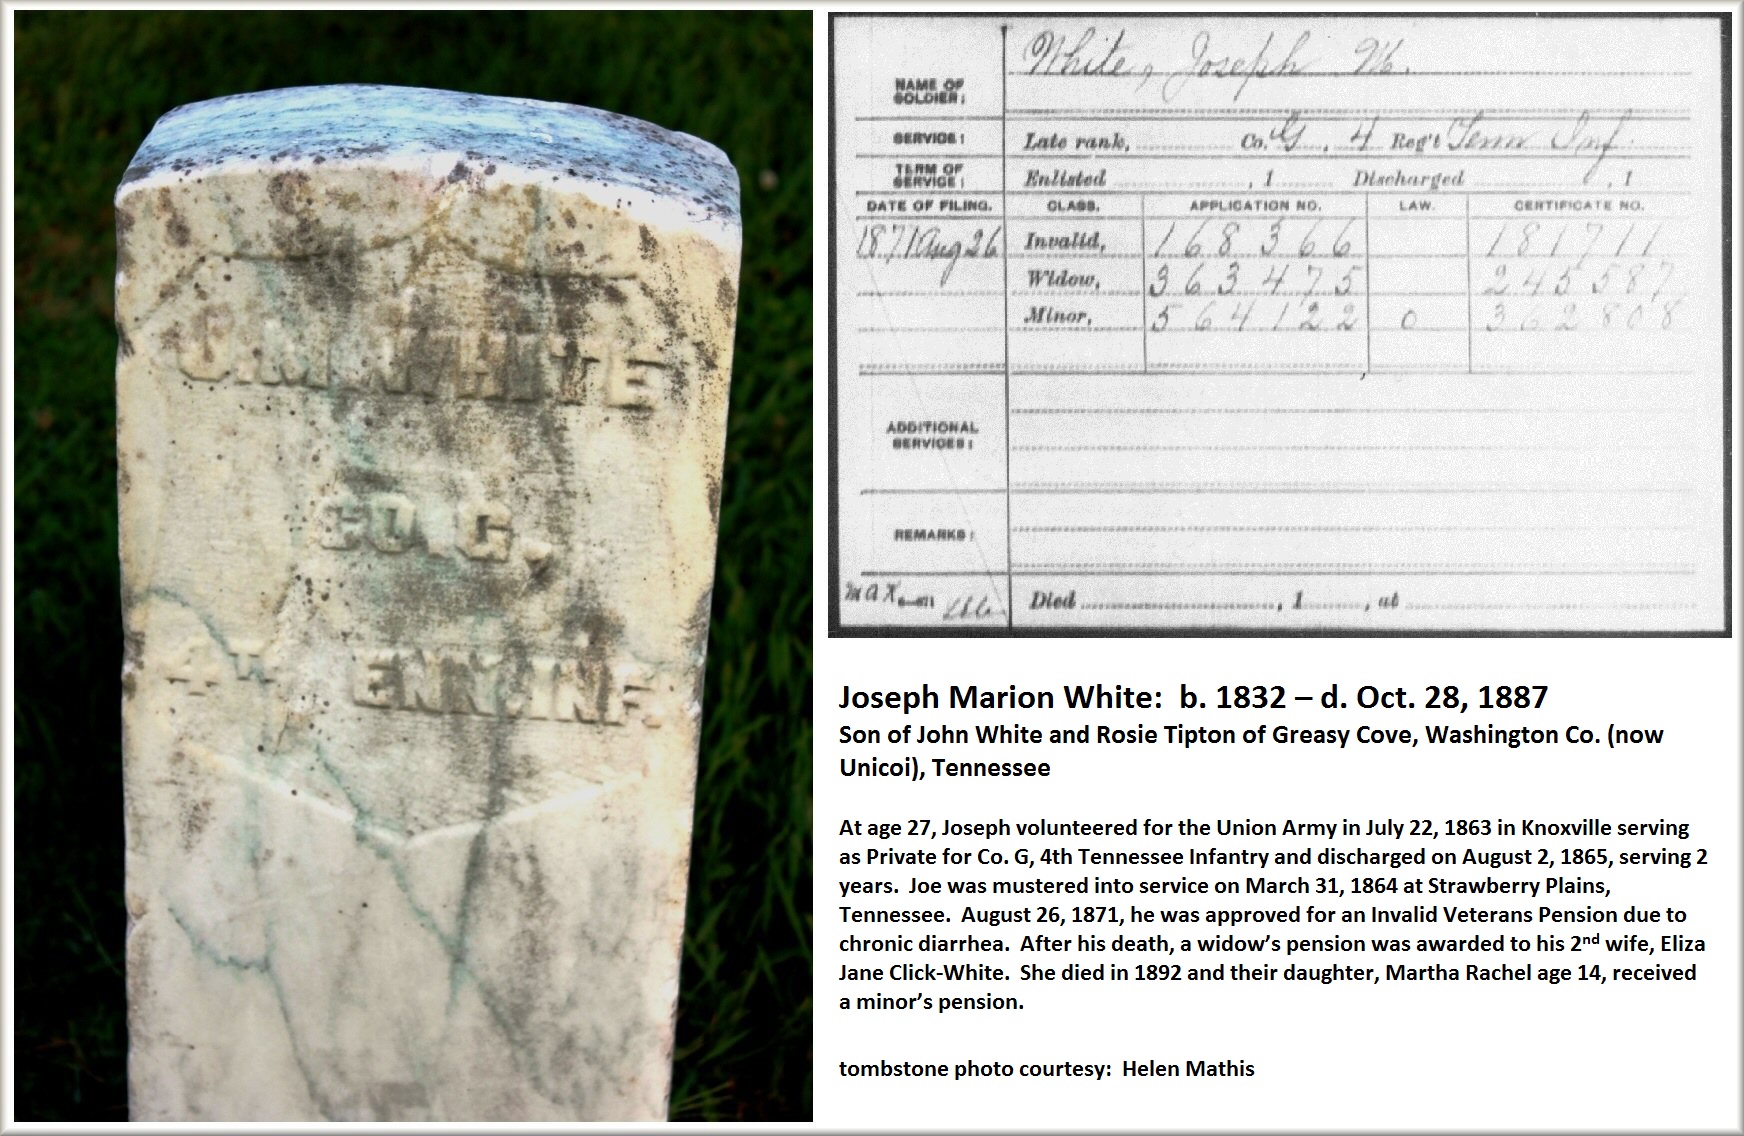 J.M. WHITE
CO. G,
4 TENN. INF.
NAME OF SOLDIER: White, Joseph M.
SERVICE: Late rank, Co. G, 4 Reg't Tenn Inf.
TERM OF SERVICE: Enlisted , 1 Discharged , 1
DATE OF FILING. CLASS. APPLICATION NO. LAW. CERTIFICATE NO.
1871 Aug 26 Invalid, 168366 181711
Widow, 363475 245587
Minor, 564122 0 362808
ADDITIONAL SERVICES:
REMARKS:
Died , 1 , at
Joseph Marion White: b. 1832 – d. Oct. 28, 1887
Son of John White and Rosie Tipton of Greasy Cove, Washington Co. (now
Unicoi), Tennessee
At age 27, Joseph volunteered for the Union Army in July 22, 1863 in Knoxville serving
as Private for Co. G, 4th Tennessee Infantry and discharged on August 2, 1865, serving 2
years. Joe was mustered into service on March 31, 1864 at Strawberry Plains,
Tennessee. August 26, 1871, he was approved for an Invalid Veterans Pension due to
chronic diarrhea. After his death, a widow’s pension was awarded to his 2nd wife, Eliza
Jane Click-White. She died in 1892 and their daughter, Martha Rachel age 14, received
a minor’s pension.
tombstone photo courtesy: Helen Mathis